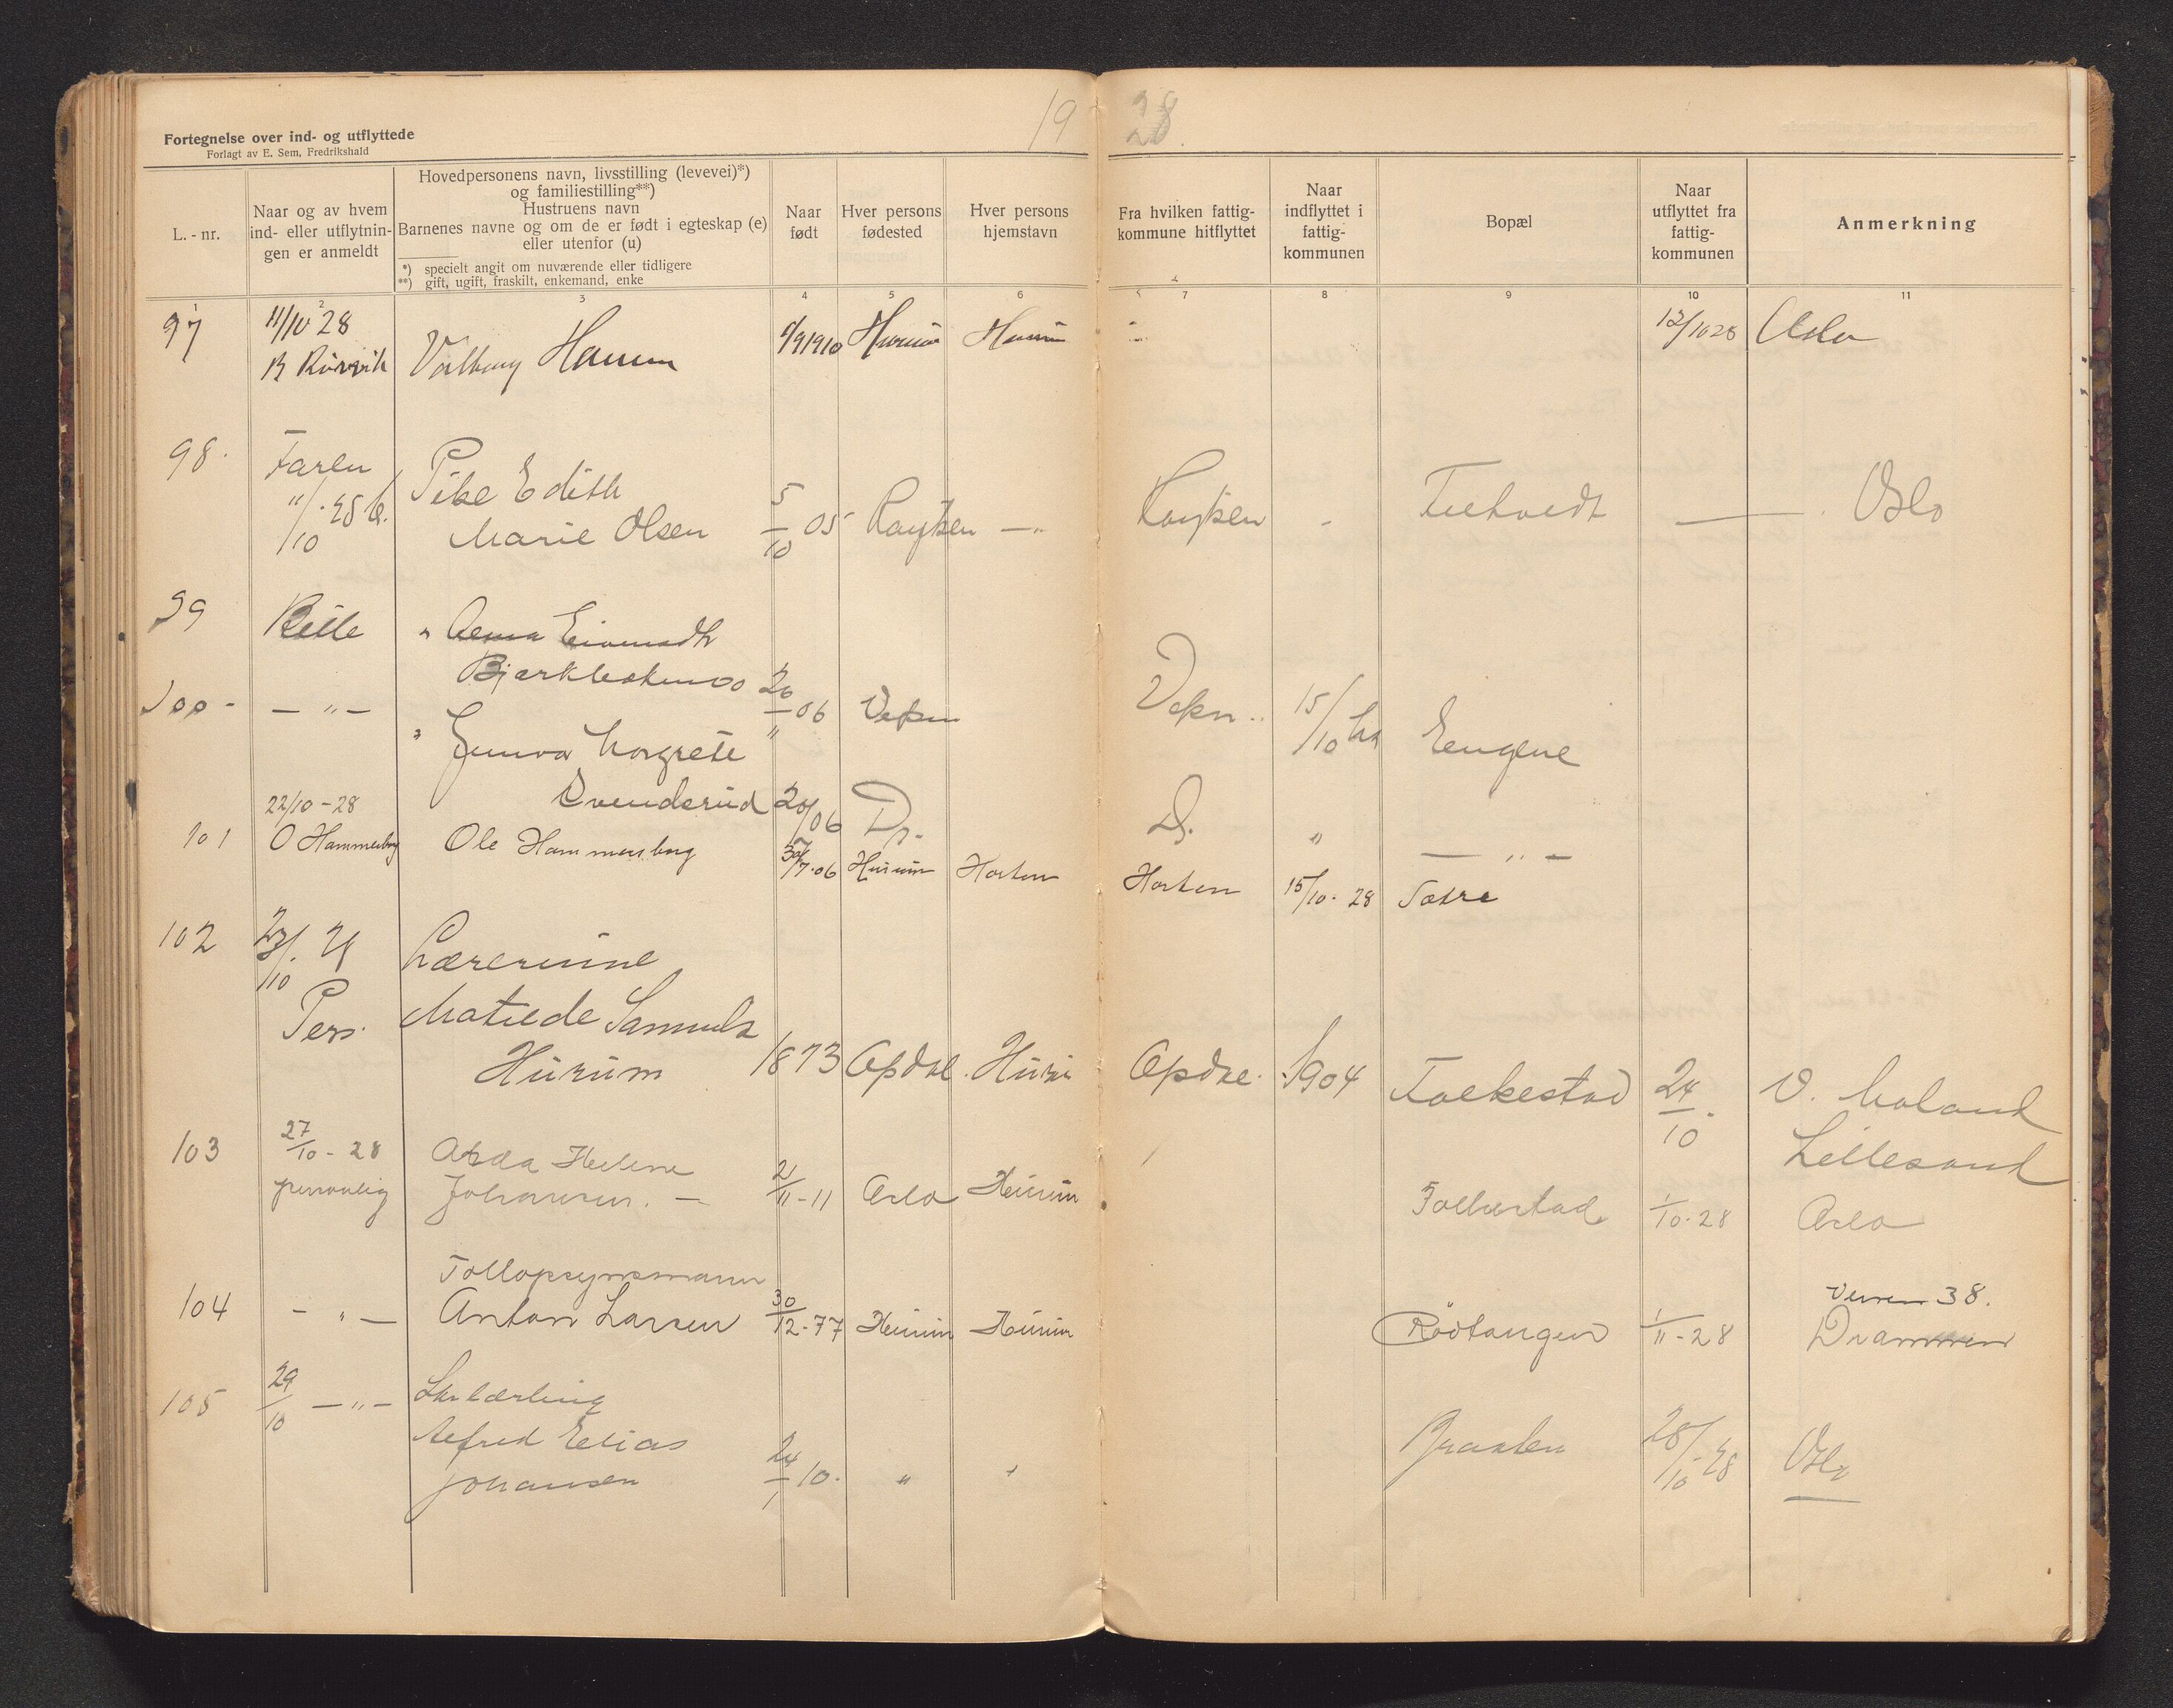 Fortegnelse over ind- og utflyttede
Forlagt av E. Sem, Fredrikshald
19 28.
L.-nr.
Naar og av hvem ind- eller utflytnin-gen er anmeldt
Hovedpersonens navn, livsstilling (levevei)*)
og familiestilling**)
Hustruens navn
Barnenes navne og om de er født i egteskap (e)
eller utenfor (u)
*) specielt angit om nuværende eller tidligere
**) gift, ugift, fraskilt, enkemand, enke
Naar født
Hver persons fødested
Hver persons hjemstavn
Fra hvilken fattig-kommune hitflyttet
Naar indflyttet i fattig-kommunen
Bopæl
Naar utflyttet fra fattig-kommunen
Anmerkning
1 2 3 4 5 6 7 8 9 10 11
97 11/10 28 Hurum Hurum 12/10 28 Oslo
R Rørvik Valborg Hansen
98. Faren Pike Edith
Marie Olsen 5/10 05 Røyken —"— Røyken - — Oslo
99 "
Bjerk
100 - — " — 20/06 15/10
" Gunvor Margrete "
22/10 - 28 Svenderud Do. Do. " — " —
101 O Hammersborg Ole Hammersborg 30/7-06 Hurum Horten Horten 15/10-28 Sætre
102 23/10 Lærerinne
Pers. Matilde
Hurum 1873 Opdal Hurum Opdal 1904 Folkestad 24/10 V. Moland
Lillesand
103 27/10 - 28 Helene
personlig Johansen. — 2/11-11 Oslo Hurum Folkestad 1/10-28 Oslo
Tollopsynsmann
38.
104 - " — Anton Larsen 30/12-77 Hurum Hurum Rødtangen 1/11-28 Drammen
105 29/10 — " —
Alfred Elias Braaten 28/10 28 Oslo
Johansen 24/1 10. " "